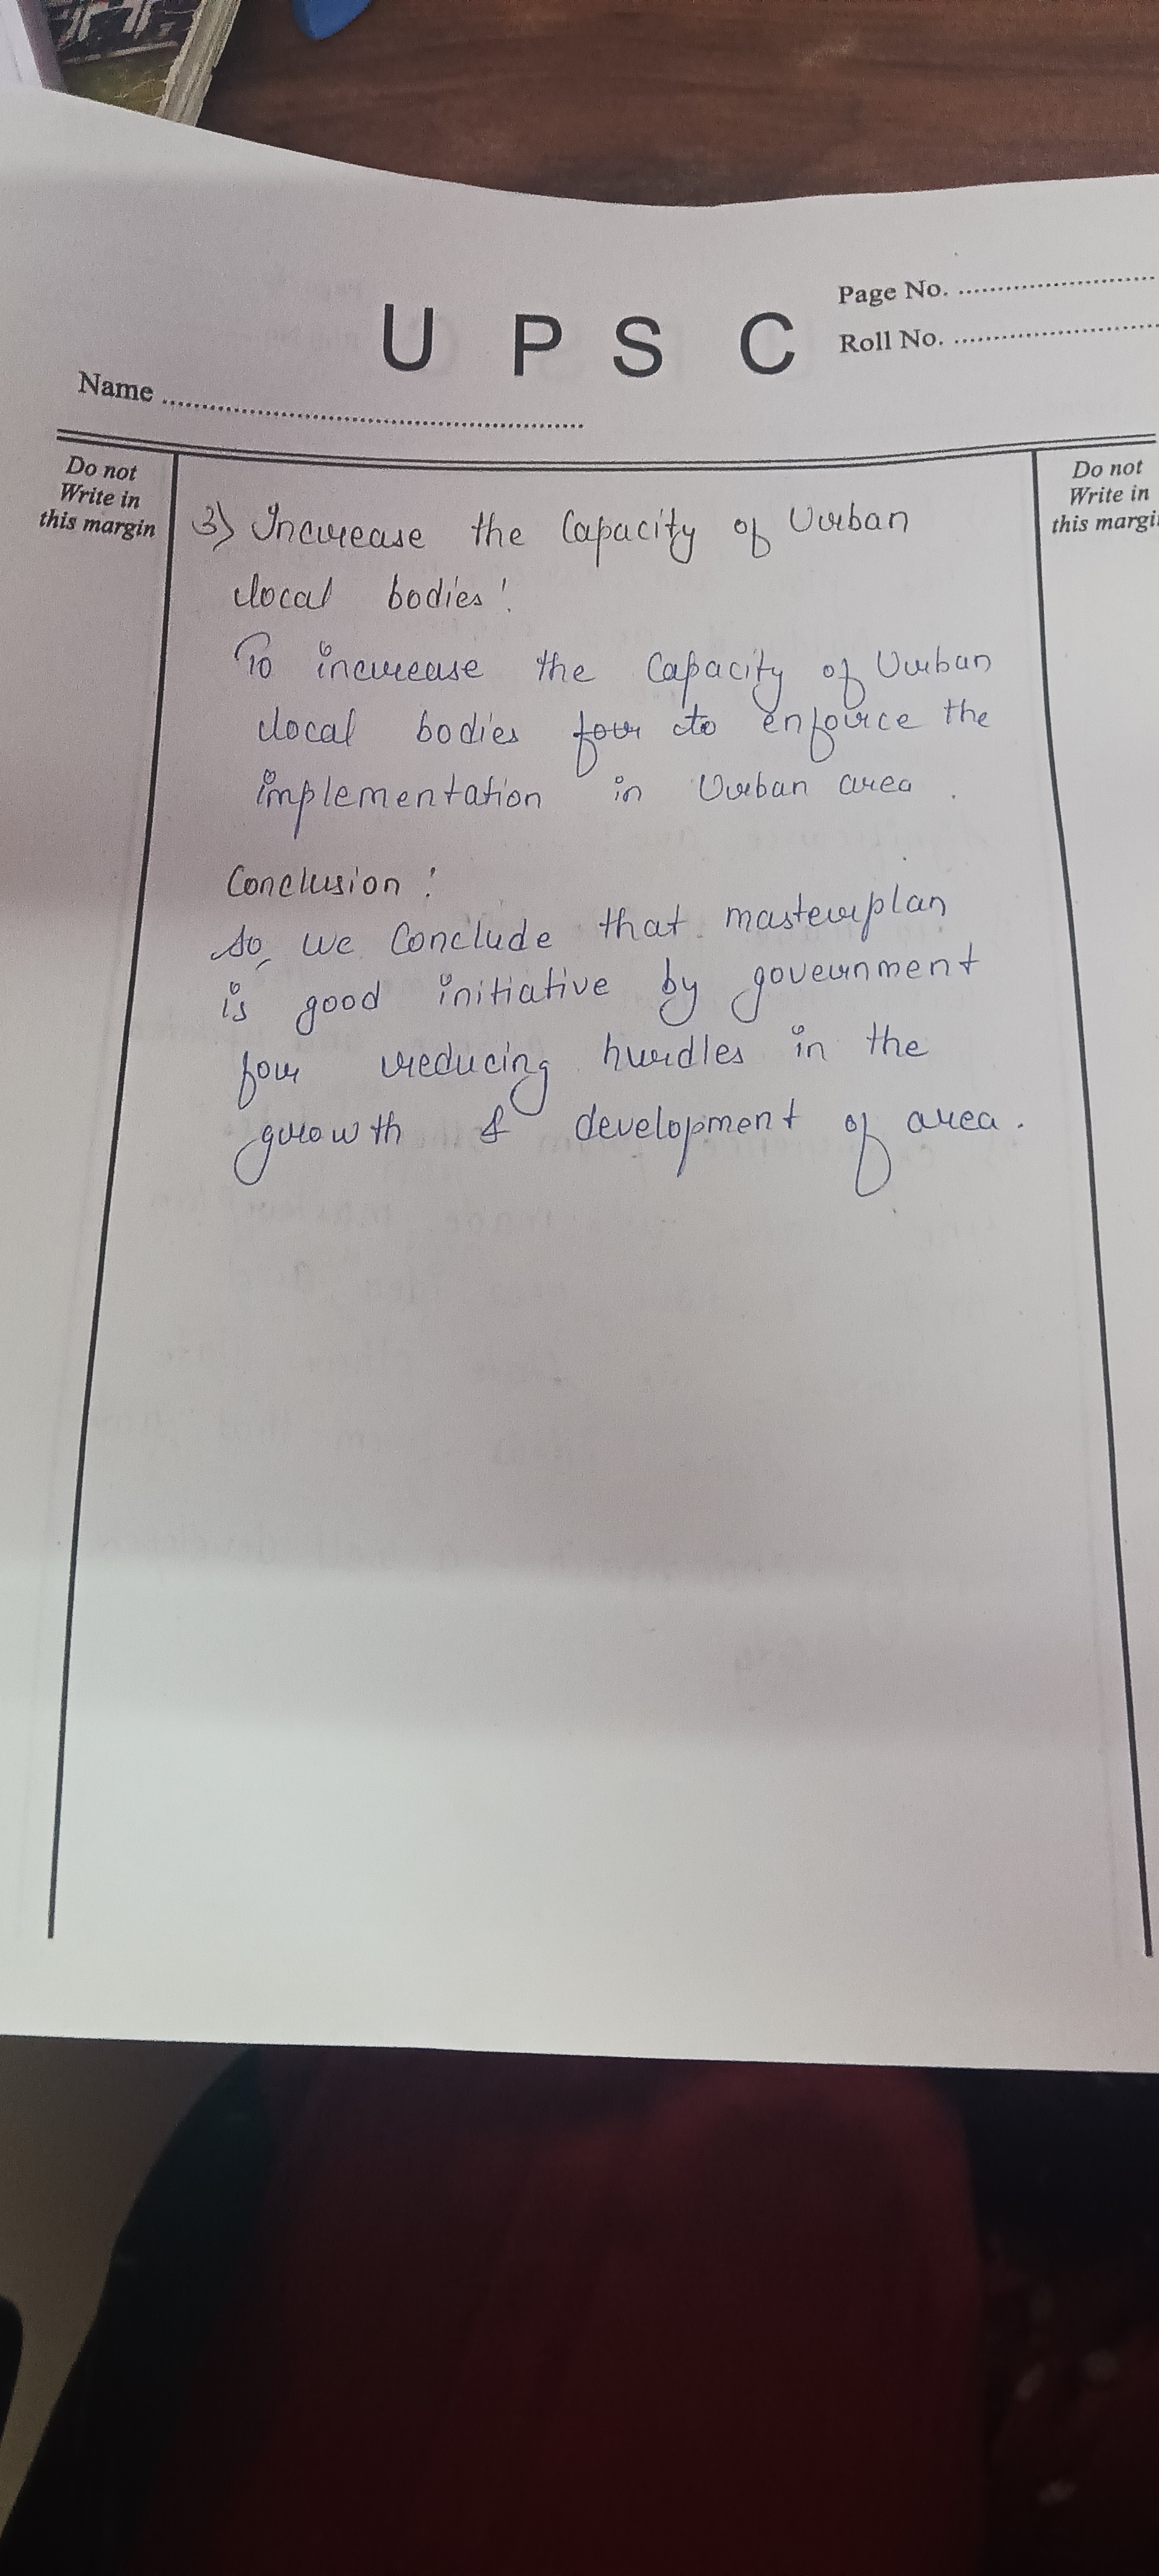 U P S C
Page No.
Roll No.
Name
Do not
Write in
this margin
Do not
Write in
this margi
3) Increase the Capacity of Urban
local bodies :
To increase the Capacity of Urban
local bodies for to enforce the
implementation in Urban area .
Conclusion :
So, we Conclude that masterplan
is good initiative by government
for reducing hurdles in the
growth & development of area .